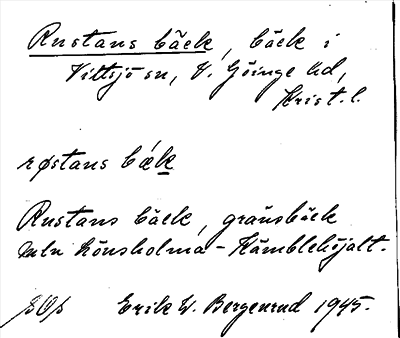 Rustans bäck, bäck i
Vittsjö sn, V. Göinge hd,
Krist. l.
røstans bæk
Rustans bäck, gränsbäck
mln Lönsholma - Hämblehöjalt.
Erik W. Bergenrud 1945.